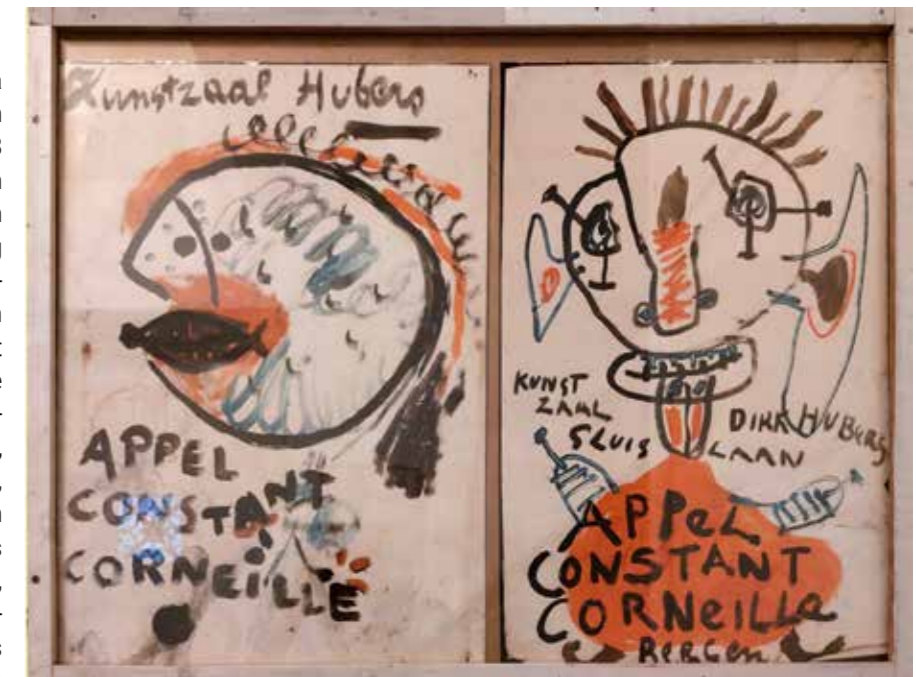 Kunstzaal Hubers
APPEL
CONSTANT
CORNEILLE
KUNST
ZAAL
SLUIS LAAN
DIRK HUBERS
APPeL
CONSTANT
CORNeiLLe
BeRGen